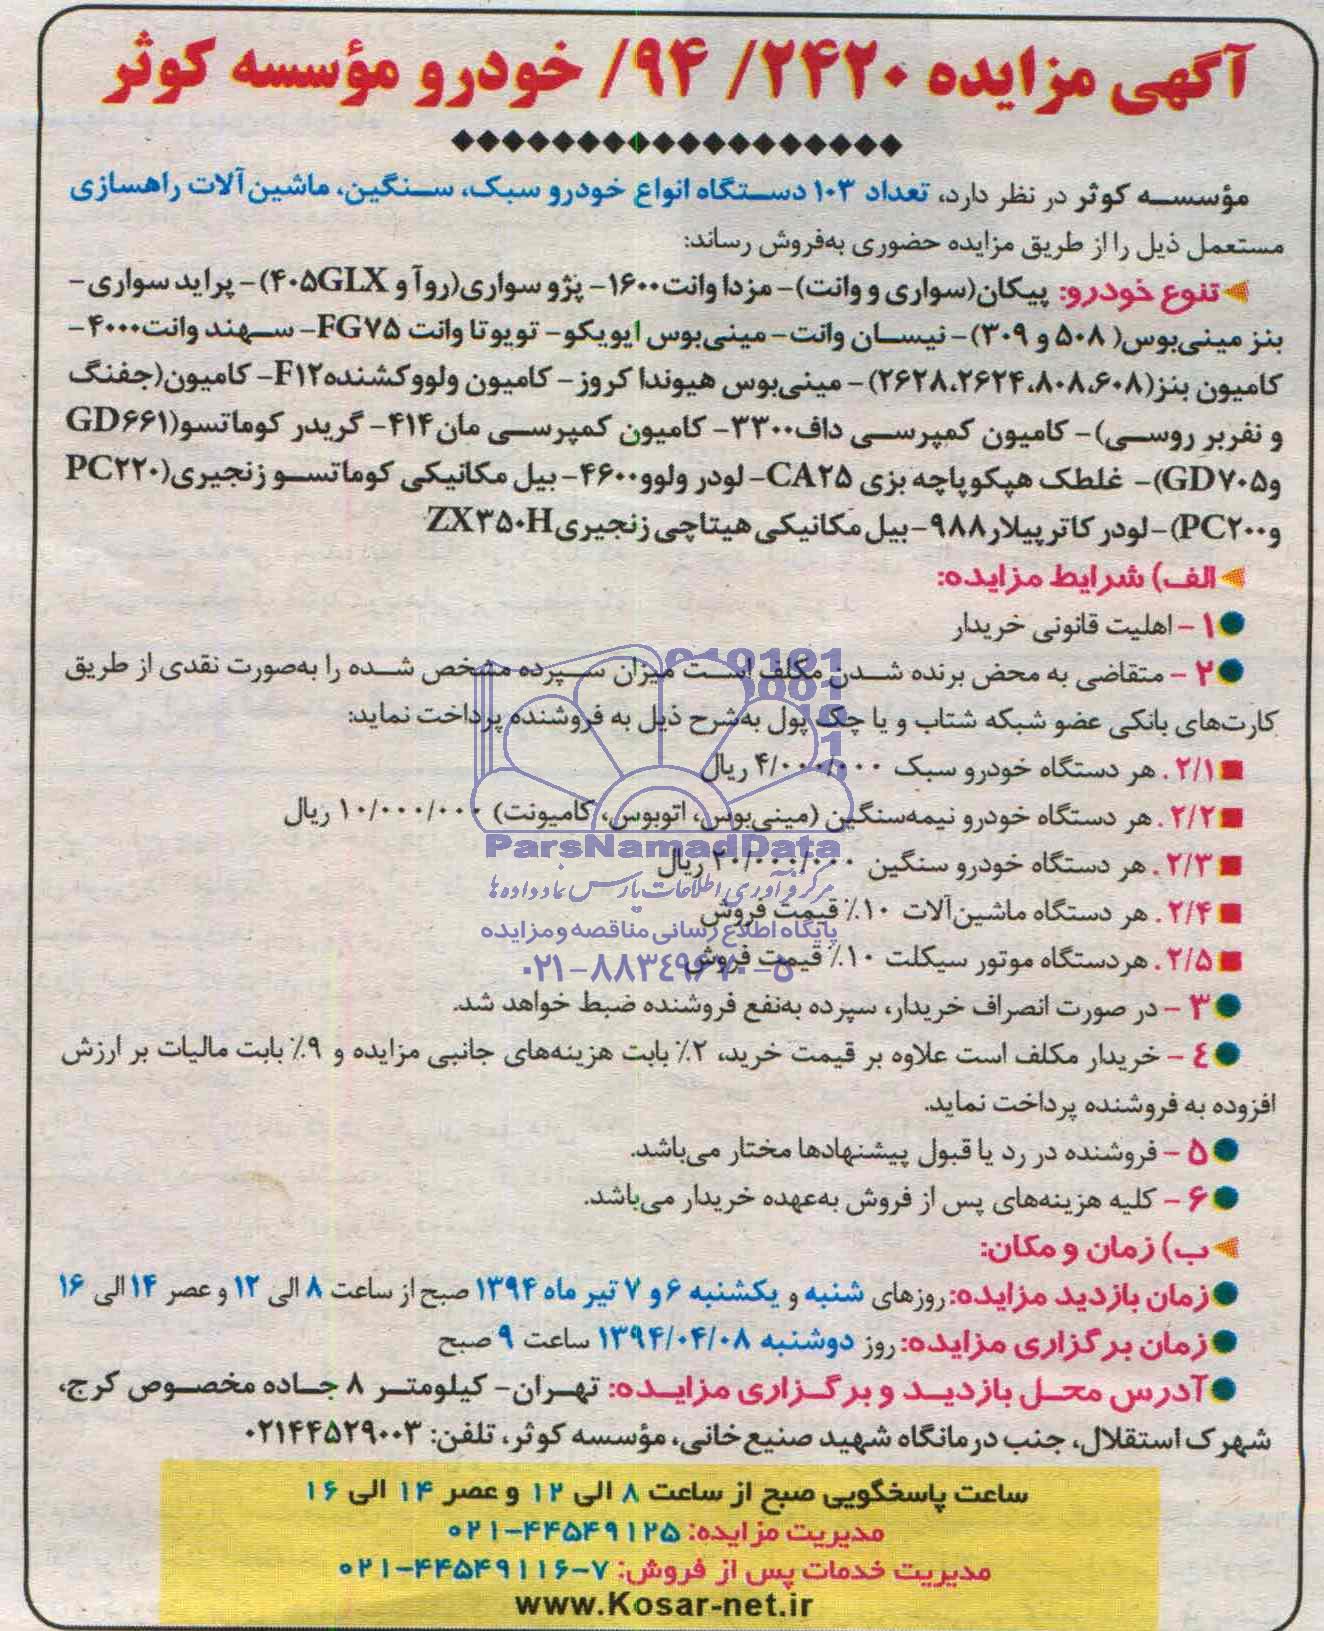 آگهی مزایده ۲۴۲۰/ ۹۴/ خودرو مؤسسه کوثر
مؤسسه کوثر در نظر دارد، تعداد ۱۰۳ دستگاه انواع خودرو سبک، سنگین، ماشین آلات راهسازی
مستعمل ذیل را از طریق مزایده حضوری به‌فروش رساند:
تنوع خودرو: پیکان(سواری و وانت)- مزدا وانت۱۶۰۰- پژو سواری(روآ و ۴۰۵GLX)- پراید سواری-
بنز مینی‌بوس( ۵۰۸ و ۳۰۹)- نیسان وانت- مینی‌بوس ایویکو- تویوتا وانت FG۷۵- سهند وانت۴۰۰۰-
کامیون بنز(۶۰۸،۸۰۸،۲۶۲۴،۲۶۲۸)- مینی‌بوس هیوندا کروز- کامیون ولووکشنده F۱۲- کامیون(جفنگ
و نفربر روسی)- کامیون کمپرسی داف۳۳۰۰- کامیون کمپرسی مان۴۱۴- گریدر کوماتسو(GD۶۶۱
وGD۷۰۵)- غلطک هپکوپاچه بزی CA۲۵- لودر ولوو۴۶۰۰- بیل مکانیکی کوماتسو زنجیری(PC۲۲۰
وPC۲۰۰)-لودر کاترپیلار۹۸۸-بیل مکانیکی هیتاچی زنجیریZX۳۵۰H
الف) شرایط مزایده:
۱- اهلیت قانونی خریدار
۲- متقاضی به محض برنده شدن مکلف است میزان سپرده مشخص شده را به‌صورت نقدی از طریق
کارت‌های بانکی عضو شبکه شتاب و یا چک پول به‌شرح ذیل به فروشنده پرداخت نماید:
۲/۱. هر دستگاه خودرو سبک ۴/۰۰۰/۰۰۰ ریال
۲/۲. هر دستگاه خودرو نیمه‌سنگین (مینی‌بوس، اتوبوس، کامیونت) ۱۰/۰۰۰/۰۰۰ ریال
ParsNamadData
۲/۳. هر دستگاه خودرو سنگین ۲۰/۰۰۰/۰۰۰ ریال
مرکز فرآوری اطلاعات پارس نماد داده‌ها
۲/۴. هر دستگاه ماشین‌آلات ۱۰٪ قیمت فروش
پایگاه اطلاع رسانی مناقصه و مزایده
۲/۵. هردستگاه موتور سیکلت ۱۰٪ قیمت فروش
۰۲۱-۸۸۳۴۹۶۷۰-۵
۳- در صورت انصراف خریدار، سپرده به‌نفع فروشنده ضبط خواهد شد.
۴- خریدار مکلف است علاوه بر قیمت خرید، ۲٪ بابت هزینه‌های جانبی مزایده و ۹٪ بابت مالیات بر ارزش
افزوده به فروشنده پرداخت نماید.
۵- فروشنده در رد یا قبول پیشنهادها مختار می‌باشد.
۶- کلیه هزینه‌های پس از فروش به‌عهده خریدار می‌باشد.
ب) زمان و مکان:
زمان بازدید مزایده: روزهای شنبه و یکشنبه ۶ و ۷ تیر ماه ۱۳۹۴ صبح از ساعت ۸ الی ۱۲ و عصر ۱۴ الی ۱۶
زمان برگزاری مزایده: روز دوشنبه ۱۳۹۴/۰۴/۰۸ ساعت ۹ صبح
آدرس محل بازدید و برگزاری مزایده: تهران- کیلومتر ۸ جاده مخصوص کرج،
شهرک استقلال، جنب درمانگاه شهید صنیع خانی، مؤسسه کوثر، تلفن: ۰۲۱۴۴۵۲۹۰۰۳
ساعت پاسخگویی صبح از ساعت ۸ الی ۱۲ و عصر ۱۴ الی ۱۶
مدیریت مزایده: ۰۲۱-۴۴۵۴۹۱۲۵
مدیریت خدمات پس از فروش: ۰۲۱-۴۴۵۴۹۱۱۶-۷
www.Kosar-net.ir